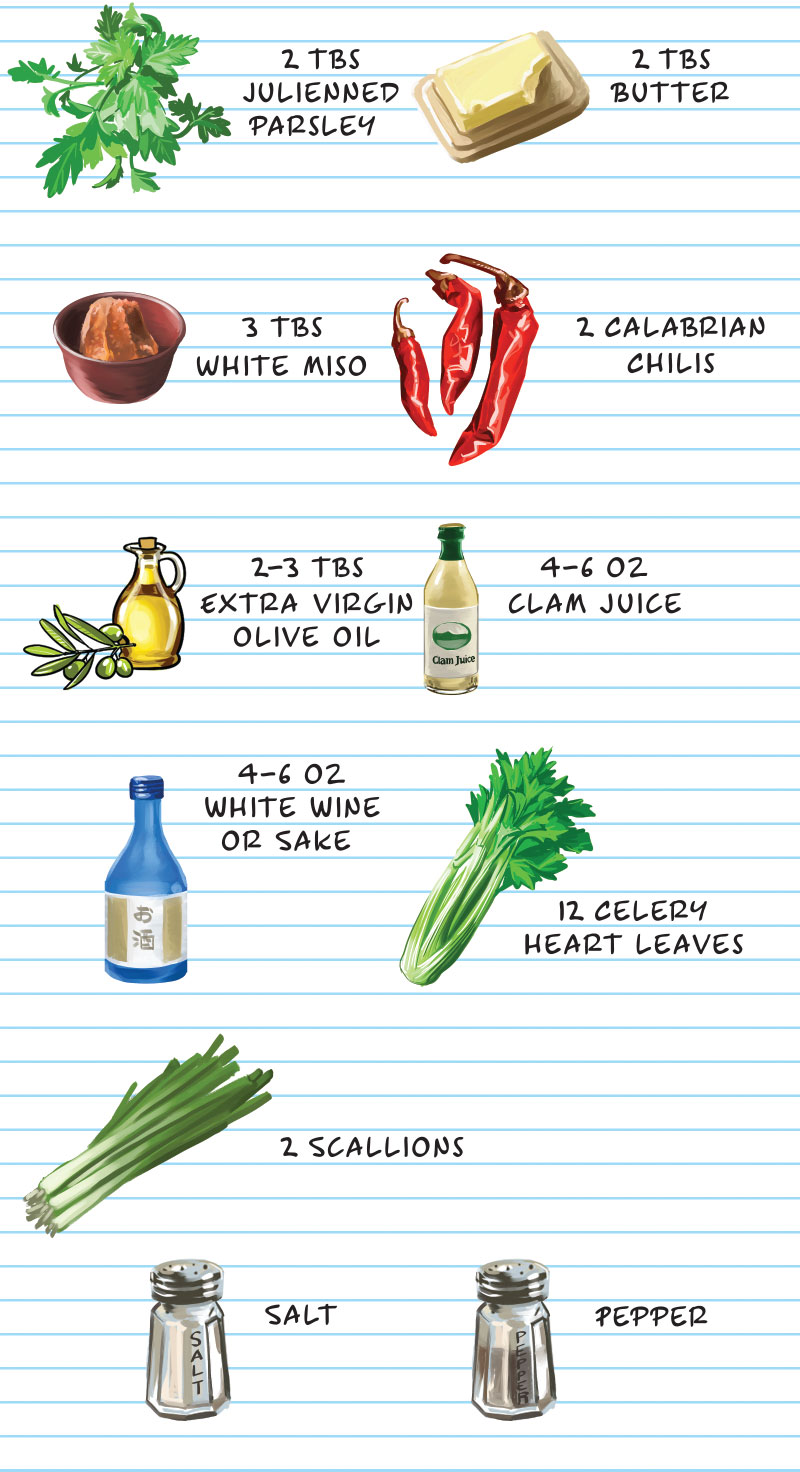 2 TBS
JULIENNED
PARSLEY
2 TBS
BUTTER
3 TBS
WHITE MISO
2 CALABRIAN
CHILIS
2-3 TBS
EXTRA VIRGIN
OLIVE OIL
4-6 OZ
CLAM JUICE
Clam Juice
4-6 OZ
WHITE WINE
OR SAKE
お
酒
12 CELERY
HEART LEAVES
2 SCALLIONS
SALT
SALT
PEPPER
PEPPER